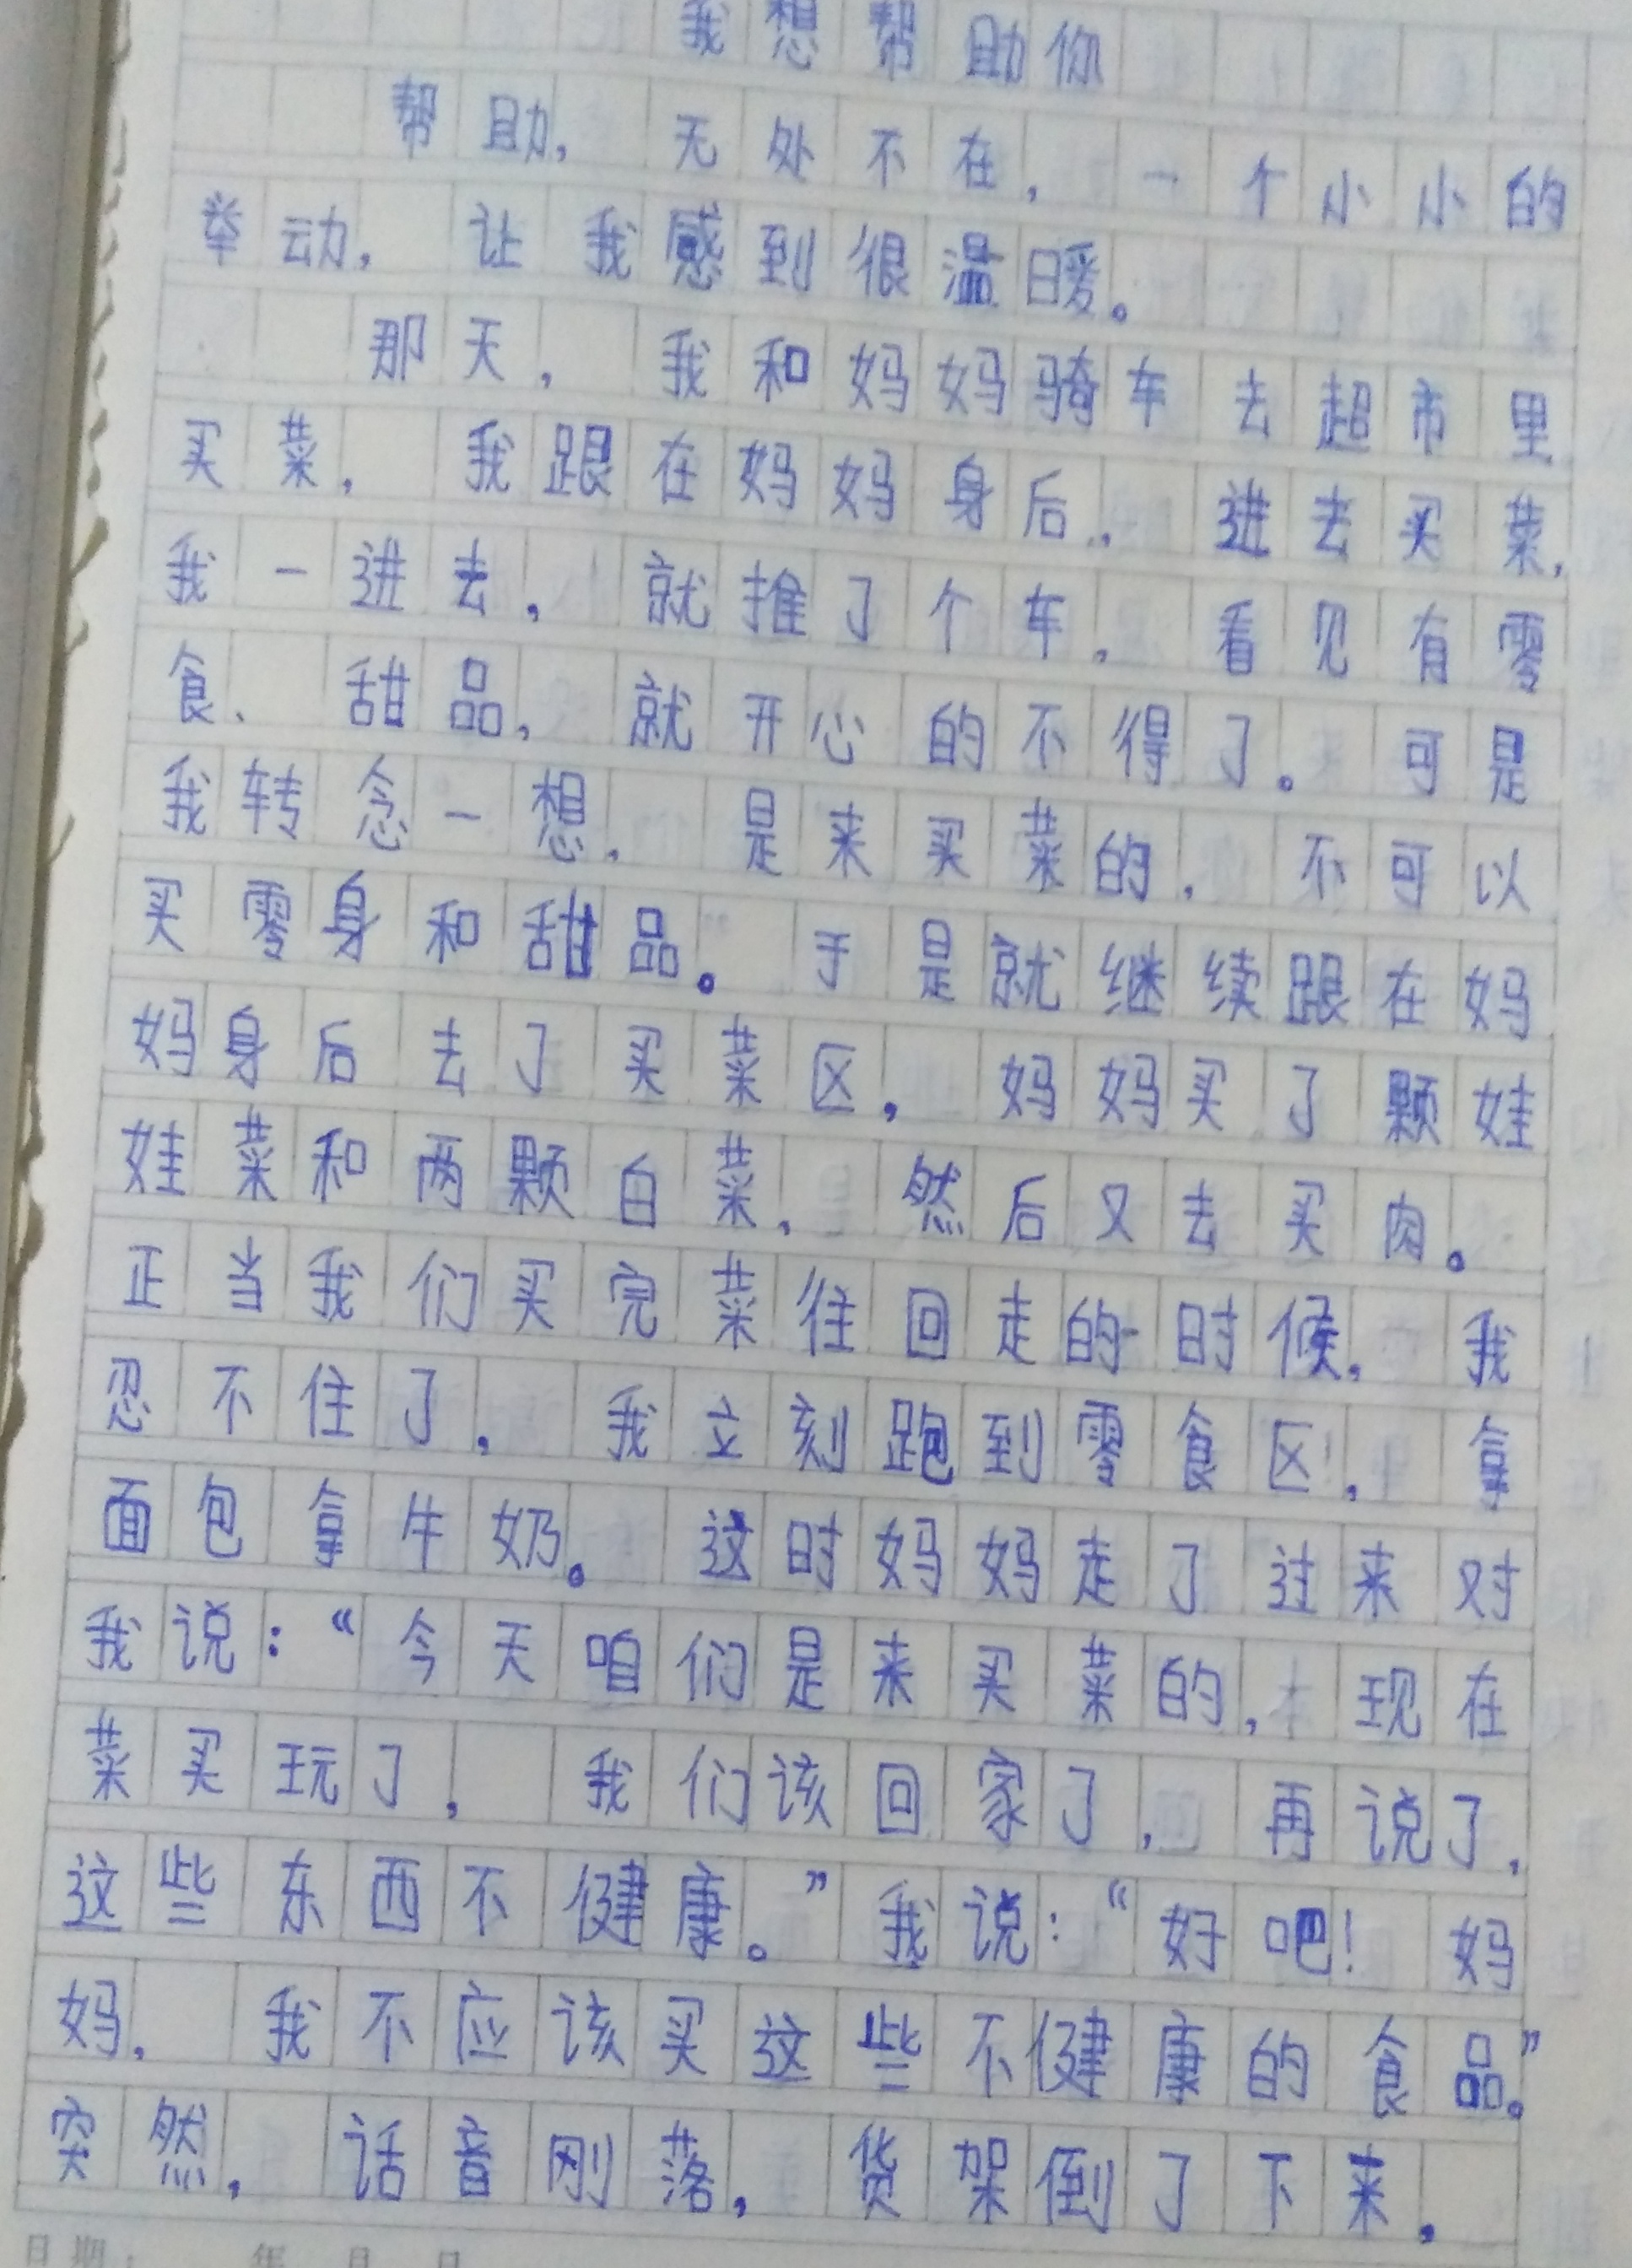 我想帮助你
帮助，无处不在，一个小小的
举动，让我感到很温暖。
那天，我和妈妈骑车去超市里
买菜，我跟在妈妈身后，进去买菜，
我一进去，就推了个车，看见有零
食、甜品，就开心的不得了。可是
我转念一想，是来买菜的，不可以
买零身和甜品。于是就继续跟在妈
妈身后去了买菜区，妈妈买了颗娃
娃菜和两颗白菜，然后又去买肉。
正当我们买完菜往回走的时候，我
忍不住了，我立刻跑到零食区，拿
面包拿牛奶。这时妈妈走了过来对
我说：“今天咱们是来买菜的，现在
菜买玩了，我们该回家了，再说了，
这些东西不健康。”我说：“好吧！妈
妈，我不应该买这些不健康的食品。”
突然，话音刚落，货架倒了下来，
日期： 年 月 日